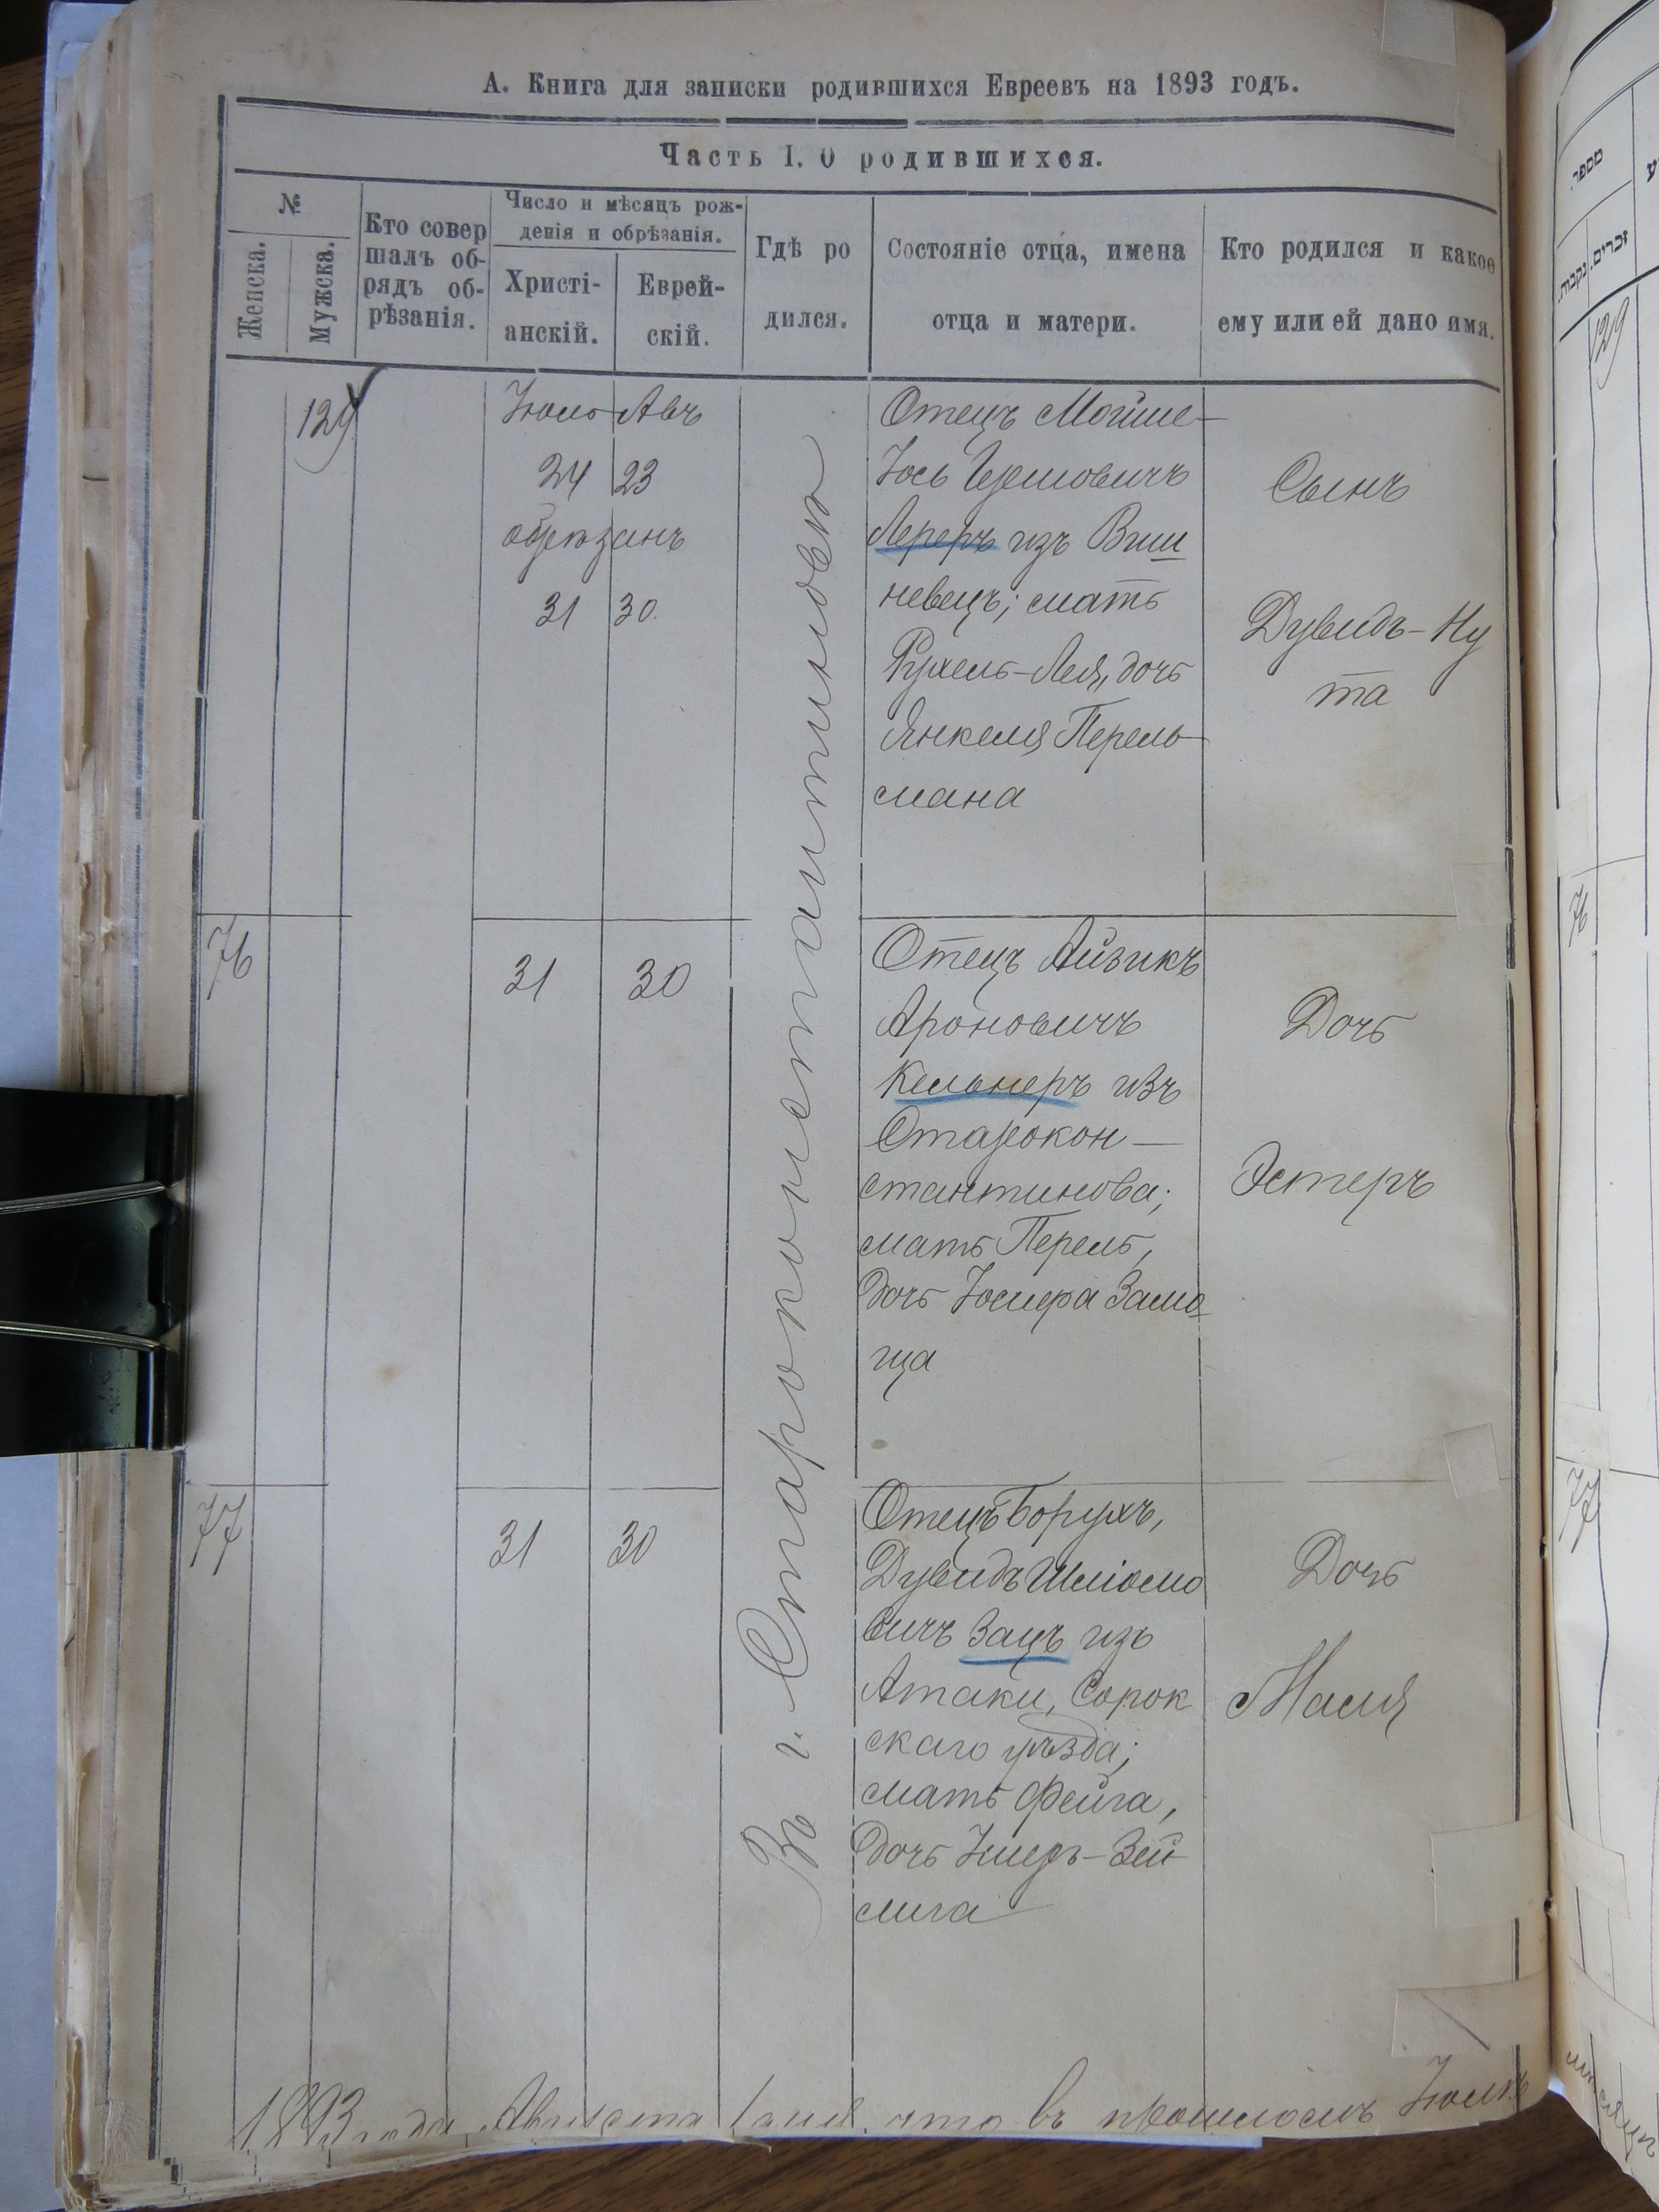 А. Книга для записки родившихся Евреевъ на 1893 годъ.
Часть I. О родившихся.
№
Женска.
Мужска.
Кто совер
шалъ об-
рядъ об-
рѣзанія.
Число и мѣсяцъ рож-
денія и обрѣзанія.
Христі-
анскій.
Еврей-
скій.
Гдѣ ро
дился.
Состояніе отца, имена
отца и матери.
Кто родился и какое
ему или ей дано имя.
129
Іюль Авъ
24 23
обрѣзанъ
31 30.
Въ г. Староконстантиновѣ
Отецъ Мойше-
Іось Гершовичъ
Лереръ изъ Виш
невецъ; мать
Рухель-Лея, дочь
Янкеля Перель
мана
Сынъ
Дувидъ-Ну
та
76
31 30
Отецъ Айзикъ
Ароновичъ
Кельнеръ изъ
Старокон-
стантинова;
мать Перель,
дочь Іосифа Замо
гца
Дочь
Эстеръ
77
31 30
Отецъ Борухъ,
Дувидъ Шліомо
вичъ Зацъ изъ
Атаки, Сорок
скаго уѣзда;
мать Фейга,
дочь -Зей
лига
Дочь
Маля
1893 года, Августа 1 дня, что въ прошломъ Іюлѣ
מספר.
נקבות.
זכרים.
129
76
77